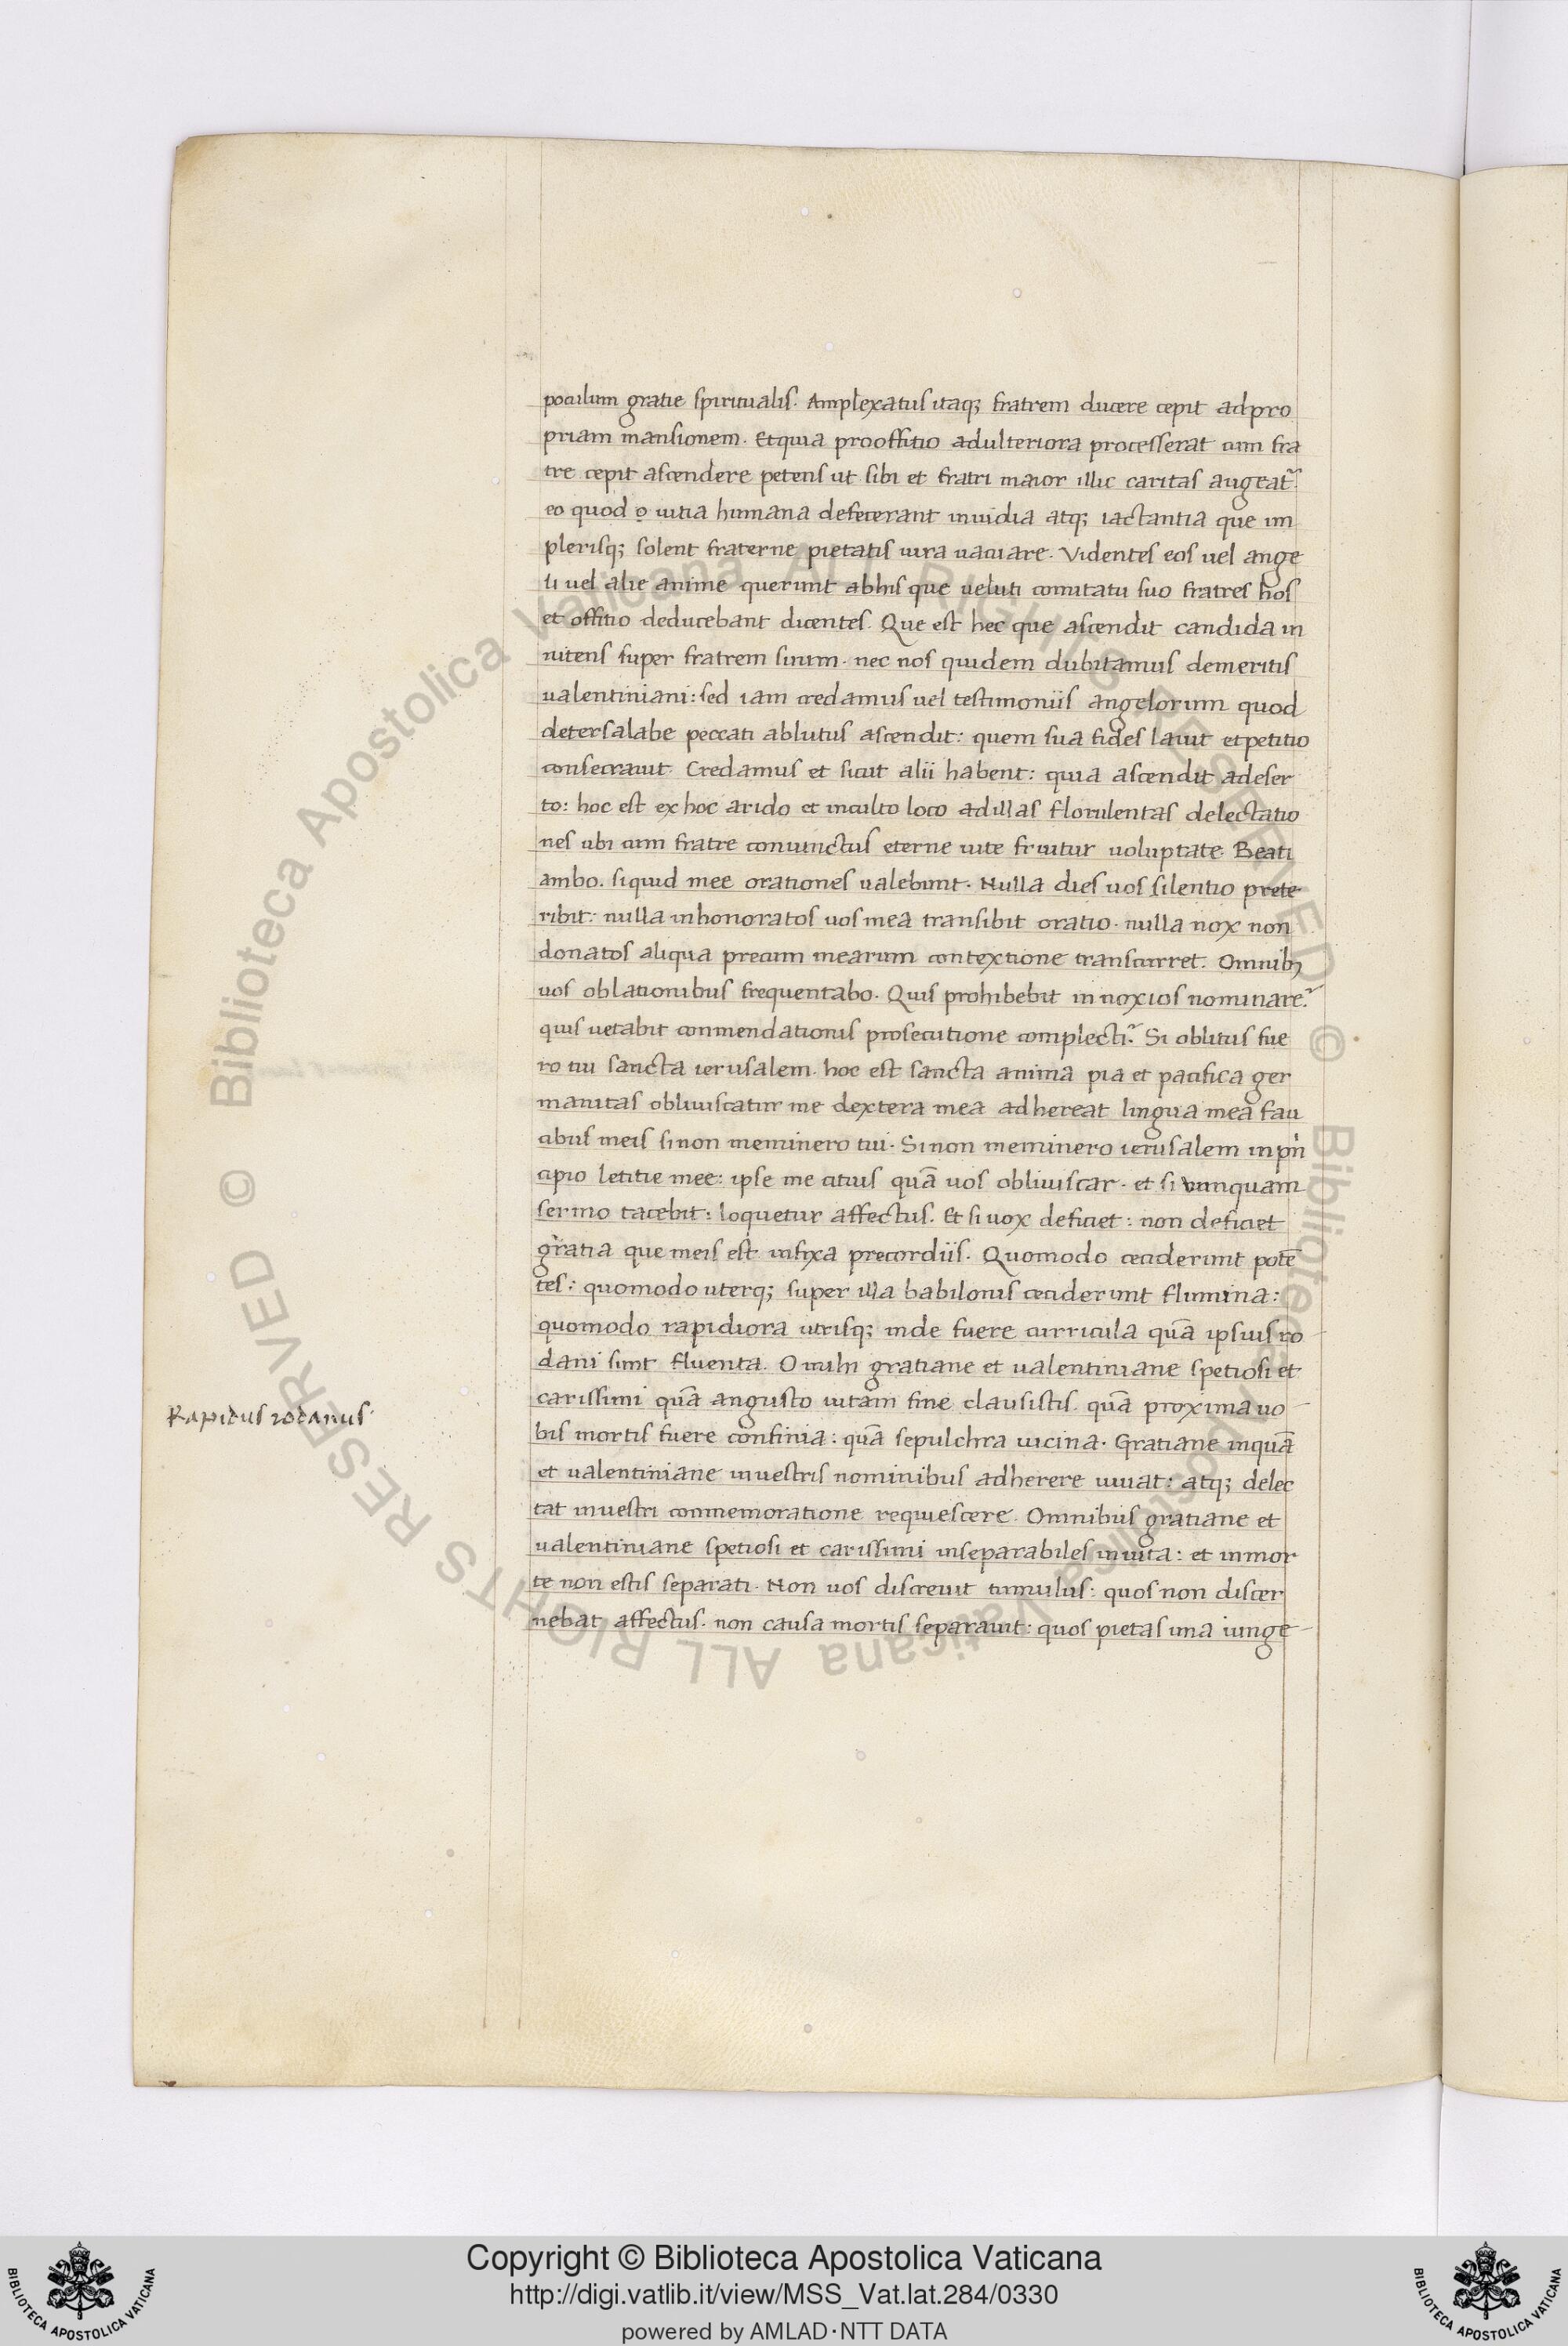 poculum gratie spiritualis. Amplexatus itaq; fratrem ducere cepit adpro
priam mansionem. Etquia prooffitio adulteriora processerat cum fra
tre cepit ascendere petens ut sibi et fratri maior illic caritas augeat᷑.
eo quod o uitia humana defecerant inuidia atq; iactantia que im
plerisq; solent fraterne pietatis iura uaciare. Videntes eos uel ange
li uel alie anime querunt abhis que veluti comitatu suo fratres hos
et offitio deducebant dicentes. Que est hec que ascendit candida in
nitens super fratrem suum. nec nos quidem dubitamus demeritis
ualentiniani: sed iam credamus uel testimoniis angelorum quod
detersalabe peccati ablutus ascendit: quem sua fides lauit etpetitio
consecrauit. Credamus et sicut alii habent: quia ascendit adeser
to: hoc est exhoc arido et inculto loco adillas florulentas delectatio
nes ubi cum fratre coniunctus eterne uite fruitur uoluptate. Beati
ambo. siquid mee orationes ualebunt. Nulla dies uos silentio prete
ribit: nulla inhonoratos uos mea transibit oratio. nulla nox non
donatos aliqua precum mearum contextione transcurret. Omnib;
uos oblationibus frequentabo. Quis prohibebit innoxios nominare?
quis uetabit conmendationis prosecutione complecti? Si oblitus fue
ro tui sancta ierusalem. hoc est sancta anima pia et pacifica ger
manitas obliuiscatur me dextera mea adhereat lingua mea fau
cibus meis sinon meminero tui. Sinon meminero ierusalem inpri
cipio letitie mee: ipse me citius quā uos obliuiscar. et si unquam
sermo tacebit: loquetur affectus. Et si uox deficiet: non deficiet
gratia que meis est infixa precordiis. Quomodo ceciderunt potē
tes: quomodo uterq; super illa babilonis ceciderunt flumina:
quomodo rapidiora utrisq; inde fuere curricula quā ipsius ro
dani sunt fluenta. O mihi gratiane et ualentiniane spetiosi et
carissimi quā angusto uitam fine clausistis. quā proxima uo
bis mortis fuere confinia: quā sepulchra uicina. Gratiane inquā
et ualentiniane inuestris nominibus adherere iuuat: atq; delec
tat inuestri conmemoratione requiescere. Omnibus gratiane et
ualentiniane spetiosi et carissimi inseparabiles inuita: et inmor
te non estis separati. Non uos discreuit tumulus: quos non discer
nebat affectus. non causa mortis separauit: quos pietas una iunge
Rapidus rodanus.
Copyright © Biblioteca Apostolica Vaticana
http://digi.vatlib.it/view/MSS_Vat.lat.284/0330
powered by AMLAD·NTT DATA
BIBLIOTECA APOSTOLICA VATICANA
BIBLIOTECA APOSTOLICA VATICANA
© Biblioteca Apostolica Vaticana ALL RIGHTS RESERVED © Biblioteca Apostolica Vaticana ALL RIGHTS RESERVED